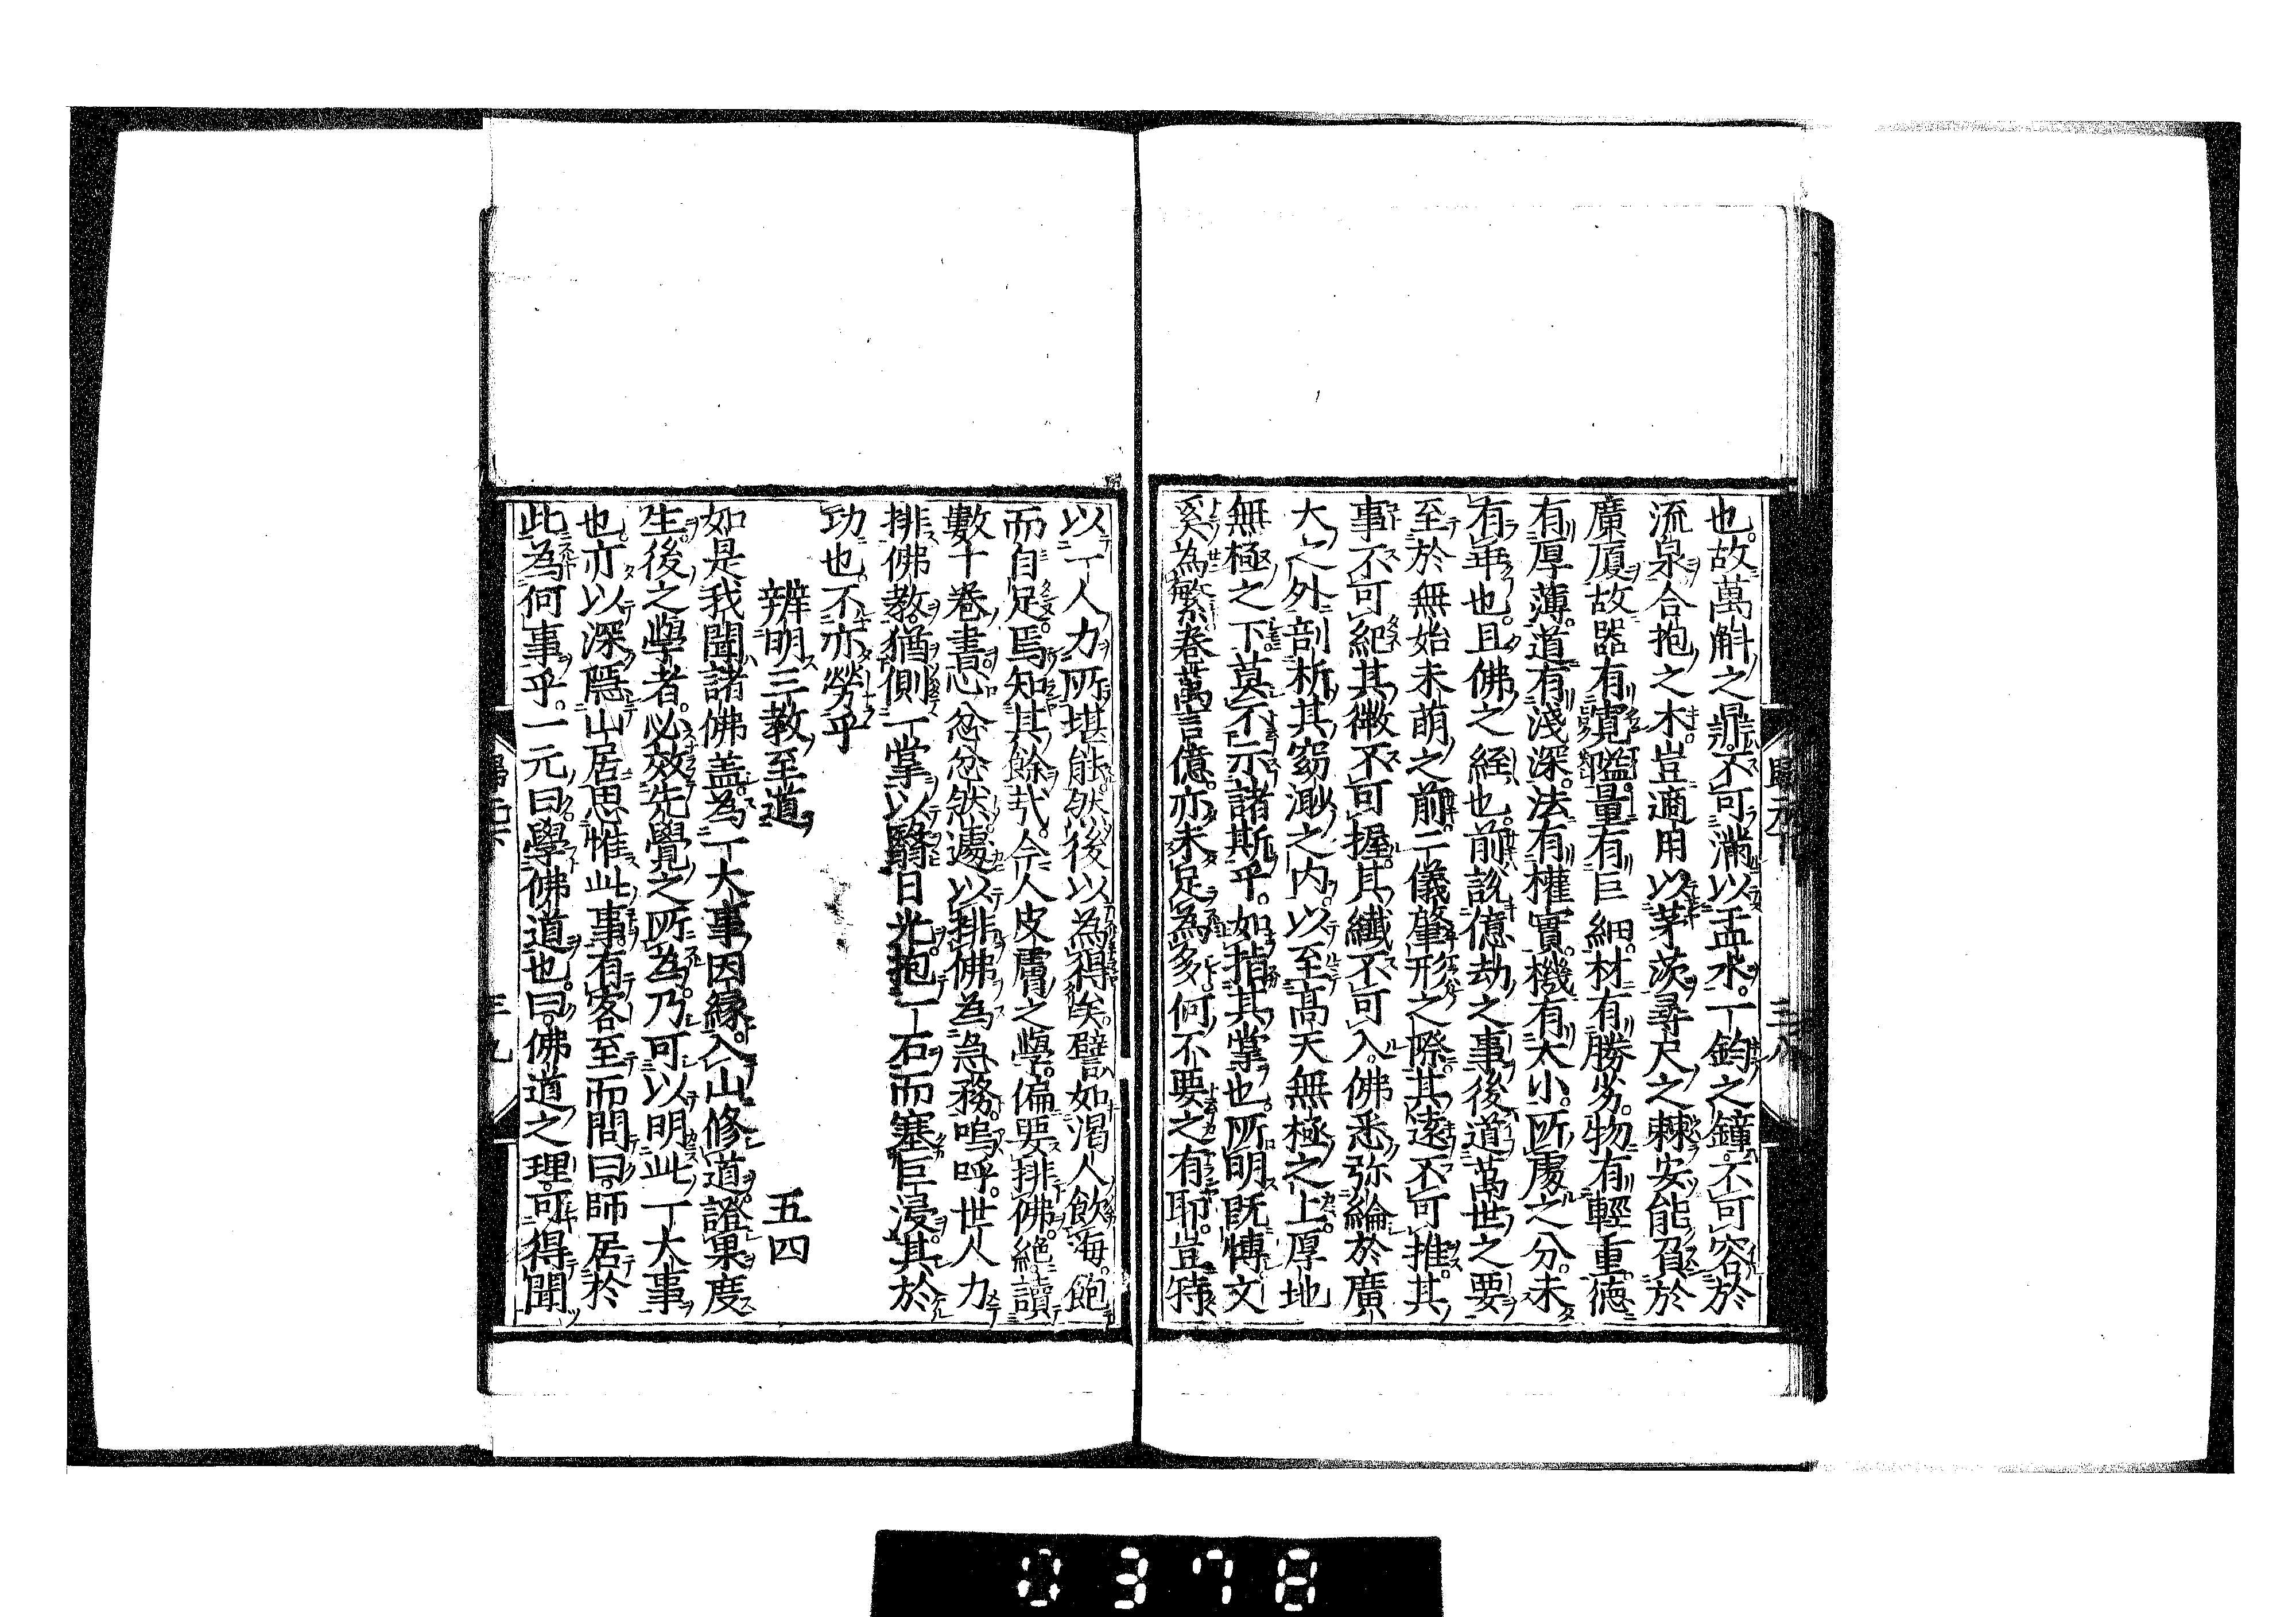 也故萬斛之鼎不可滿以盂水一鈞之鐘不可容於
流泉合抱之木豈適用以茅茨尋尺之棘安能負於
廣厦故器有寬隘量有巨細材有勝劣物有輕重德
有厚薄道有淺深法有權實機有大小所處之分未
有乖也且佛之經也前説億劫之事後道萬世之要
至於無始未萌之前二儀肇形之際其遠不可推其
事不可紀其微不可握其纖不可入佛悉弥綸於廣
大之外剖析其窈渺之内以至高天無極之上厚地
無極之下莫不示諸斯乎如指其掌也所明既博文
奚為繁卷萬言億亦未足為多何不要之有耶豈特
以一人力所堪能然後以為得矣譬如渇人飲海飽
而自足焉知其餘㢤今人皮膚之學偏要排佛絶讀
數十卷書心忿忿然遽以排佛為急務嗚呼世人力
排佛教猶側一掌以翳日光抱一石而塞巨浸其於
功也不亦勞乎
辨明三教至道 五四
如是我聞諸佛盖為一大事因縁入山修道證果度
生後之學者必效先覺之所為乃可以明此一大事
也亦以深隱山居思惟此事有客至而問曰師居於
此為何事乎一元曰學佛道也曰佛道之理可得聞
歸元 三八
三九
0378